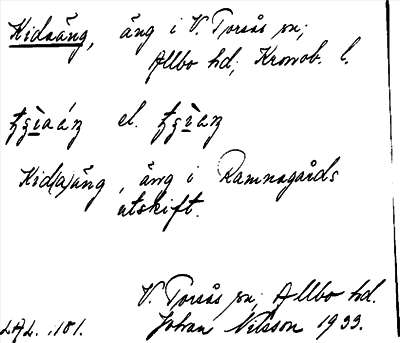 Kidaäng, äng i V. Torsås sn;
Allbo hd; Kronob. l.
el.
Kid(a)äng, äng i Ramnagårds
utskift.
V. Torsås sn; Allbo hd.
Johan Nilsson 1933.